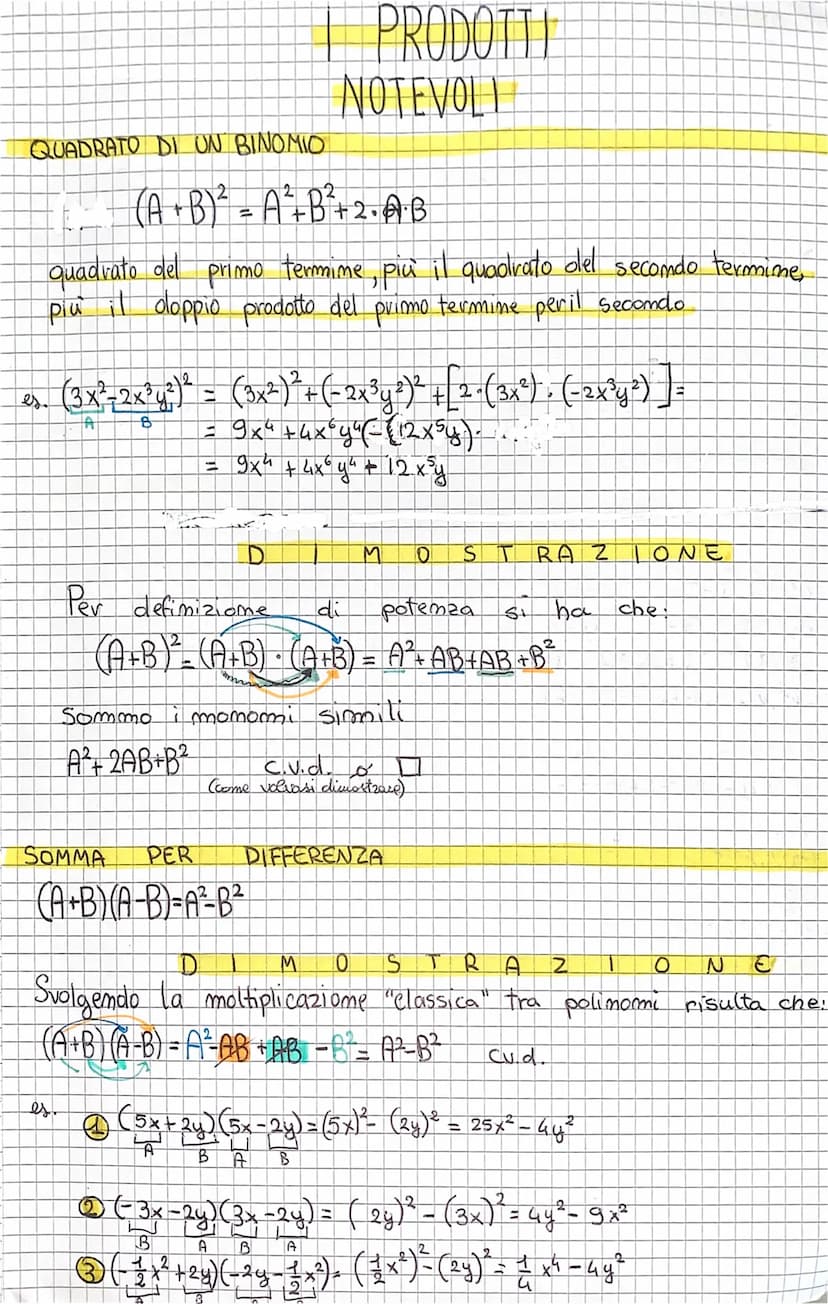 I PRODOTTI
NOTEVOLI
QUADRATO DI UN BINOMIO
(A+B)² = A²+B²+2·A·B
quadrato del primo termine, più il quadrato del secondo termine,
più il doppio prodotto del primo termine per il secondo
es. (3x²-2x³y²)² = (3x²)²+(-2x³y²)²+[2·(3x²)·(-2x³y²)]=
A B
= 9x⁴+4x⁶y⁴(-{12x⁵y).
= 9x⁴ + 4x⁶y⁴ + 12x⁵y
DIMOSTRAZIONE
Per definizione di potenza si ha che:
(A+B)²=(A+B)·(A+B)= A²+AB+AB+B²
Sommo i monomi simili
A²+2AB+B² c.v.d. o □
(come volevasi dimostrare)
SOMMA PER DIFFERENZA
(A+B)(A-B)=A²-B²
DIMOSTRAZIONE
Svolgendo la moltiplicazione "classica" tra polinomi risulta che:
(A+B)(A-B)=A²-AB+AB-B²= A²-B² c.v.d.
es. 1 (5x+2y)(5x-2y)=(5x)²-(2y)² = 25x²-4y²
A B A B
2 (-3x-2y)(3x-2y) = (2y)²-(3x)²=4y²-9x²
B A B A
3 (-1/2x²+2y)(-2y-1/2x²)= (1/2x²)²-(2y)²= 1/4x⁴-4y²